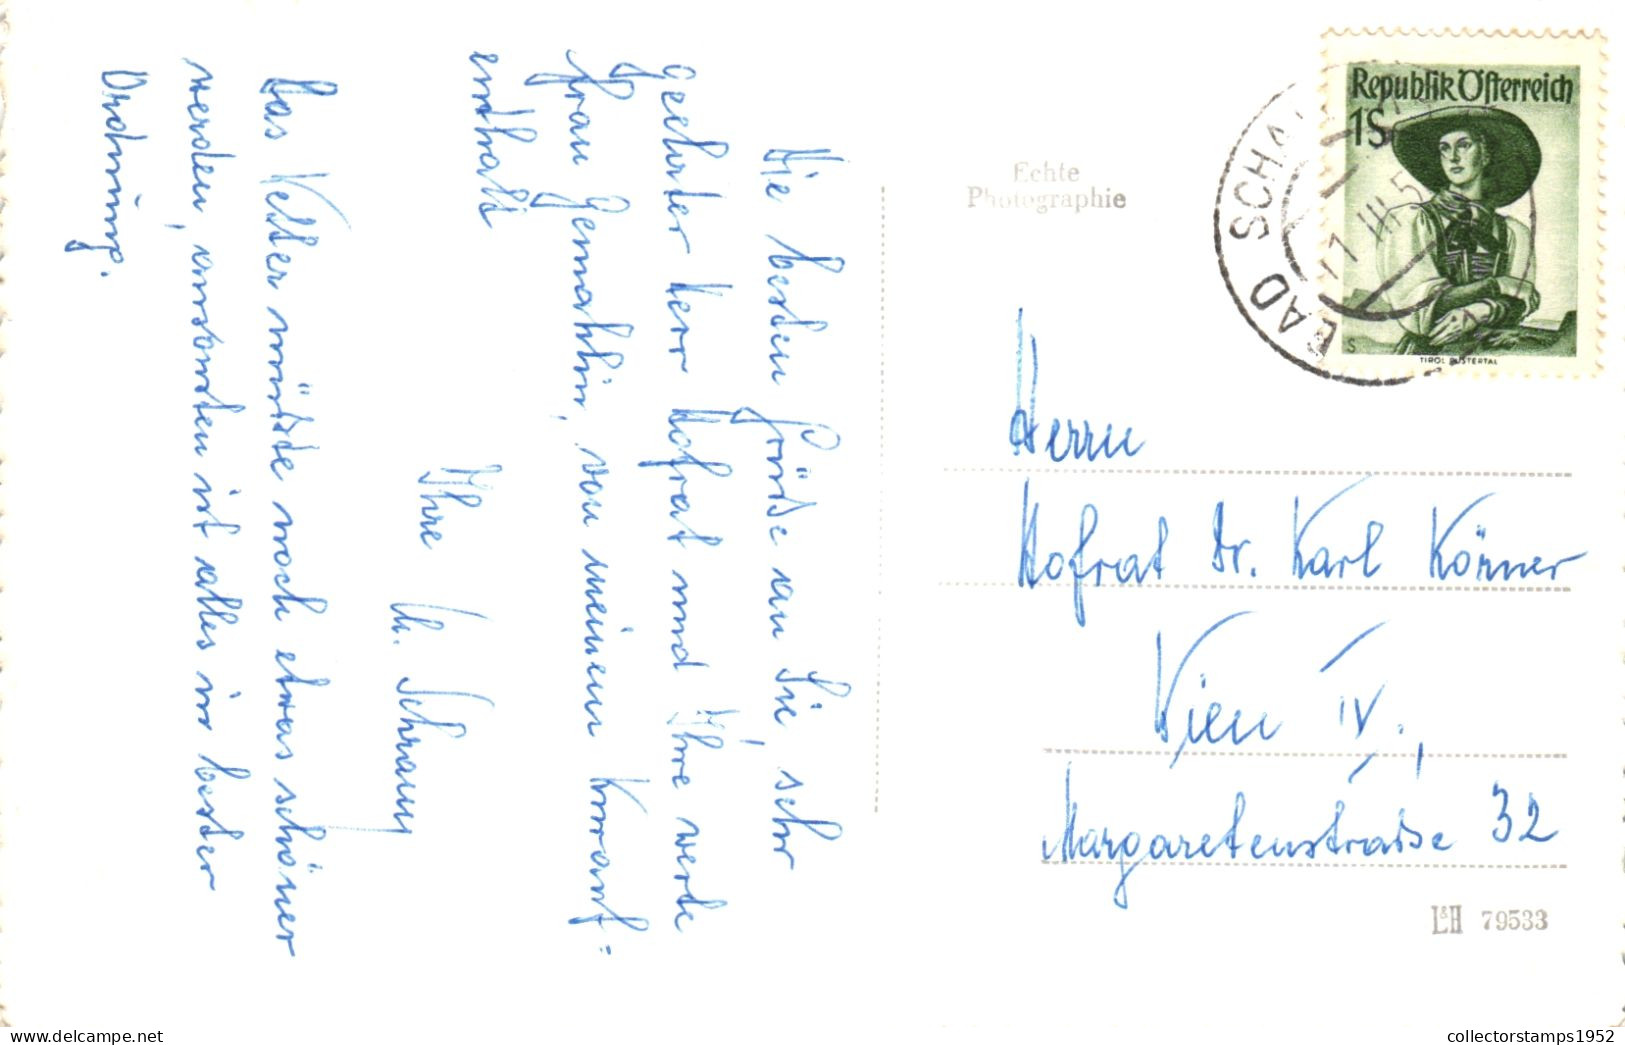 Die besten Grüße an Sie, sehr
geehrter Herr Hofrat und Ihre werte
Frau Gemahlin, von meinem Kurauf=
enthalt
Ihre M. Schramm
Das Wetter müßte noch etwas schöner
werden, ansonsten ist alles in bester
Ordnung.
Echte
Photographie
Republik Österreich
1S
S
TIROL PUSTERTAL
BAD SCHA
Herrn
Hofrat Dr. Karl Körner
Wien IV.,
Margaretenstraße 32
L&H 79533
collectorstamps1952